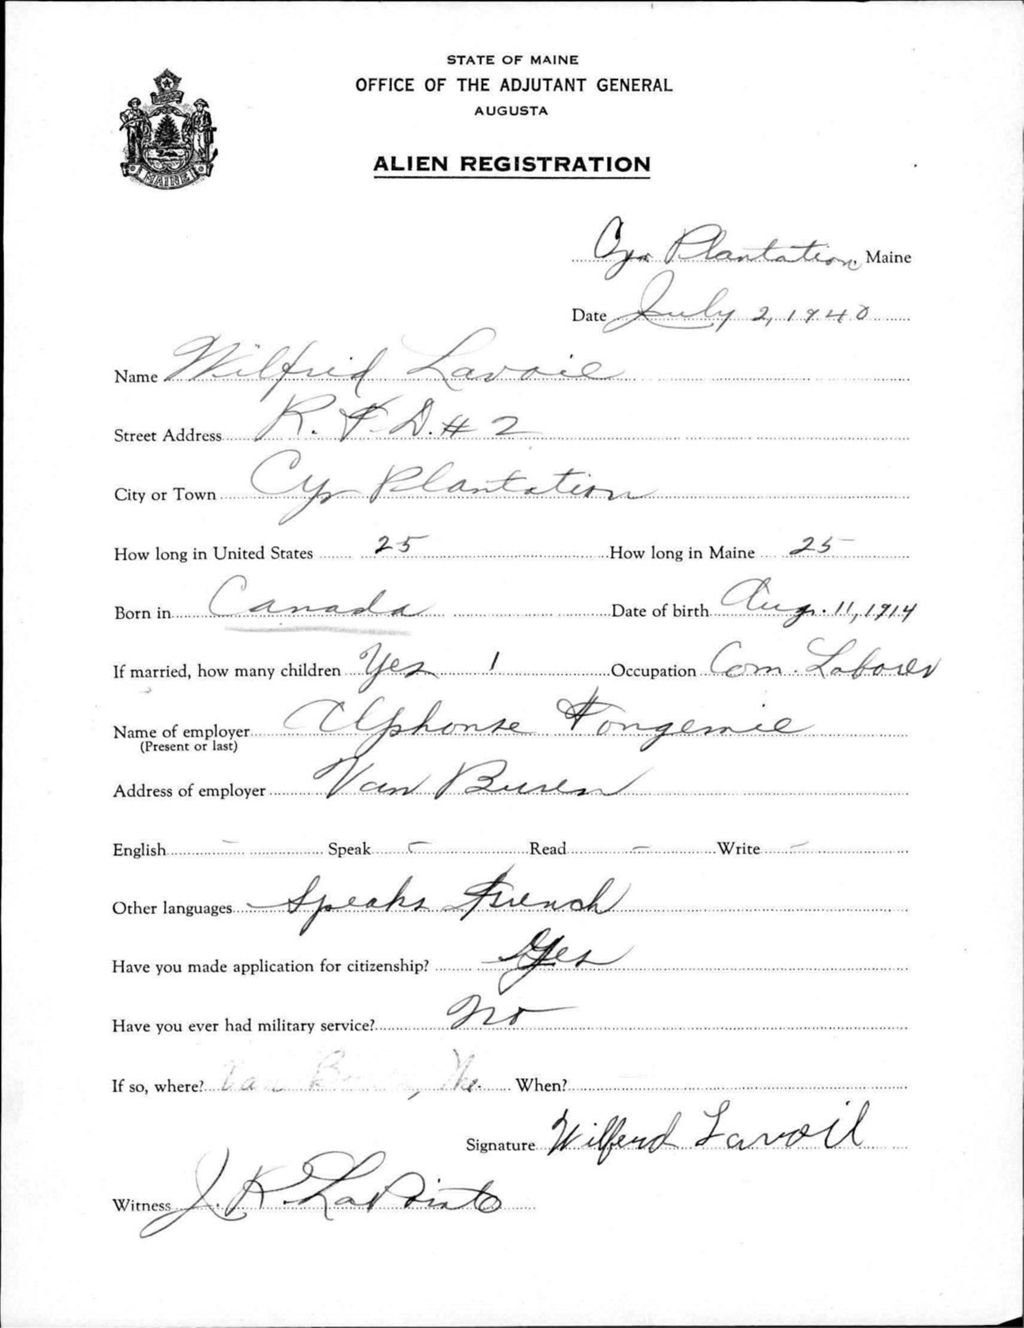 STATE OF MAINE
OFFICE OF THE ADJUTANT GENERAL
AUGUSTA
ALIEN REGISTRATION
MAINE
Cyr Plantation, Maine
Date July 2, 1940
Name Wilfrid Lavoie
Street Address R. F. D. # 2
City or Town Cyr Plantation
How long in United States 25 How long in Maine 25
Born in Canada Date of birth Aug. 11, 1914
If married, how many children Yes 1 Occupation Com. Laborer
Name of employer Alphonse Fongemie
(Present or last)
Address of employer Van Buren
English - Speak - Read - Write -
Other languages Speaks French
Have you made application for citizenship? Yes
Have you ever had military service? No
If so, where? Van Me. When?
Signature Wilferd Lavoil
Witness J. R. LaPointe